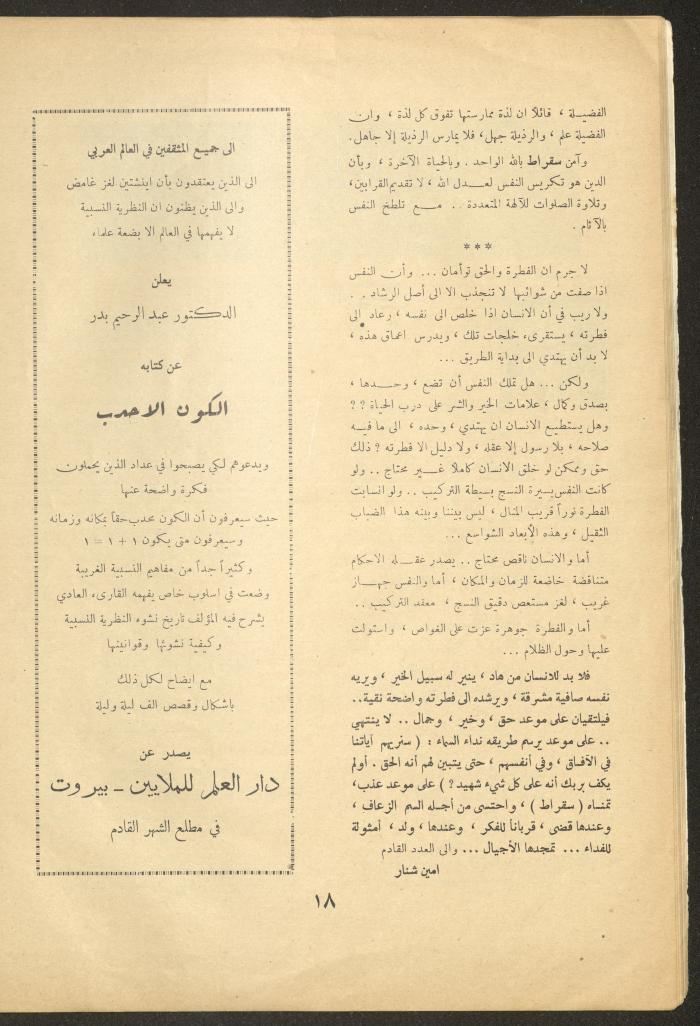 الفضيـلة ، قائلاً ان لذة ممارستها تفوق كل لذة ، وان
الفضيلة علم ، والرذيلة جهل، فلا يمارس الرذيلة إلا جاهل.
وآمن سقراط بالله الواحد . وبالحياة الآخرة ، وبأن
الدين هو تكريس النفس لعـدل الله ، لا تقديم القرابين،
وتلاوة الصلوات للآلهة المتعددة .. مـع تلطخ النفس
بالآثام .
***
لا جرم ان الفطرة والحق توأمان ... وأن النفس
اذا صفت من شوائبها لا تنجذب الا الى أصل الرشاد . .
ولا ريب في أن الانسان اذا خلص الى نفسه ، وعاد الى
فطرته ، يستقرىء خلجات تلك ، ويدرس اعماق هذه ،
لا بد أن يهتدي الى بداية الطريق ...
ولكن ... هل تملك النفس أن تضع ، وحـدها ،
بصدق وكمال ، علامات الخير والشر على درب الحياة ؟ ؟
وهل يستطيع الانسان ان يهتدي ، وحده ، الى ما فيـه
صلاحه ، بلا رسول إلا عقله ، ولا دليل الا فطرته ؟ ذلك
حق وممكن لو خلق الانسان كاملا غـير محتاج .. ولو
كانت النفس يسيرة النسج بسيطة التركيب .. ولو انسابت
الفطرة نوراً قريب المنال ، ليس بيننا وبينه هذا الضباب
الثقيل ، وهذه الأبعاد الشواسع ...
أما والانسان ناقص محتاج .. يصدر عقـله الاحكام
متناقضة خاضعة للزمان والمكان ، أما والنفس جهـاز
غريب ، لغز مستعص دقيق النسج ، معقد التركيب ..
أما والفطرة جوهرة عزت على الغواص ، واستولت
عليها وحول الظلام ...
فلا بد للانسان من هاد ، ينير له سبيل الخير ، ويريه
نفسه صافية مشرقة ، ويرشده الى فطرته واضحة نقية..
فيلتقيان على موعد حق ، وخير ، وجمال .. لا ينتهي
.. على موعد يرسم طريقه نداء السماء : ( سنريهم آياتنا
في الآفـاق ، وفي أنفسهم ، حتى يتبين لهم أنه الحق . أولم
يكف بربك أنه على كل شيء شهيد ؟ ) على موعد عذب،
تمنـاه ( سقراط ) ، واحتسى من أجـله السم الزعاف ،
وعندها قضى ، قرباناً للفكر ، وعندها ، ولد ، أمثولة
للفداء ... تمجدها الأجيال ... والى العدد القادم
امين شنار
الى جميـع المثقفين في العالم العربي
الى الذين يعتقدون بأن اينشتين لغز غامض
والى الذين يظنون ان النظرية النسبية
لا يفهمها في العالم الا بضعة علماء
يعلن
الدكتور عبد الرحيم بدر
عن كتابه
الكون الاحدب
ويدعوهم لكي يصبحوا في عداد الذين يحملون
فكرة واضحة عنها
حيث سيعرفون أن الكون محدب حقاً بمكانه وزمانه
وسيعرفون متى يكون ١ + ١ = ١
وكثيراً جداً من مفاهيم النسبية الغريبة
وضعت في اسلوب خاص يفهمه القارىء العادي
يشرح فيه المؤلف تاريخ نشوء النظرية النسبية
وكيفية نشوئها وقوانينها
مع ايضاح لكل ذلك
باشكال وقصص الف ليلة وليلة
يصدر عن
دار العلم للملايين - بيروت
في مطلع الشهر القادم
١٨